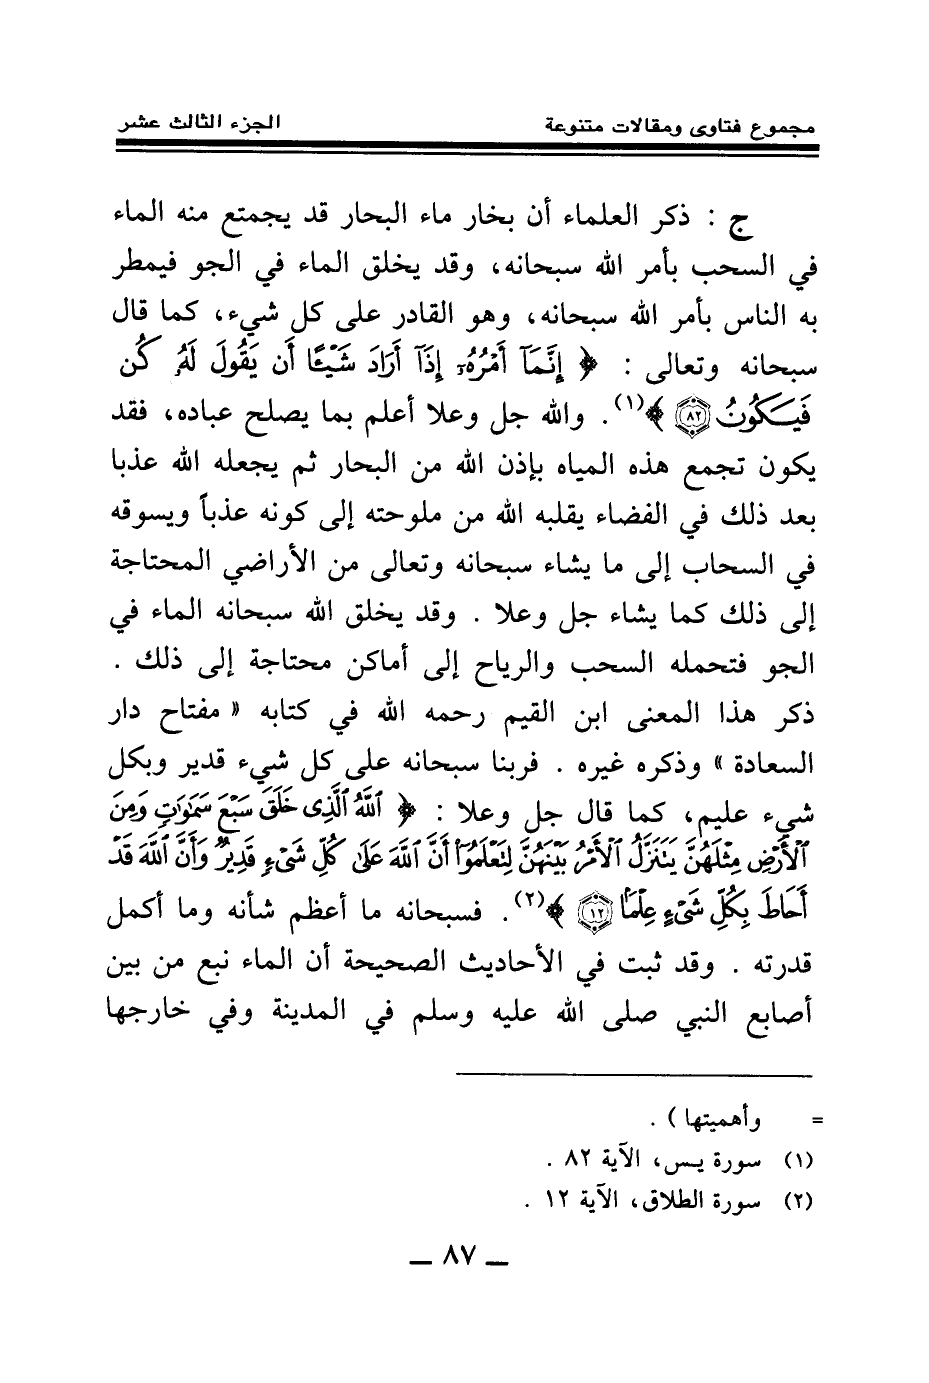 مجموع فتاوى ومقالات متنوعة الجزء الثالث عشر
ج : ذكر العلماء أن بخار ماء البحار قد يجمتع منه الماء
في السحب بأمر الله سبحانه، وقد يخلق الماء في الجو فيمطر
به الناس بأمر الله سبحانه، وهو القادر على كل شيء، كما قال
سبحانه وتعالى : ﴿ إِنَّمَآ أَمْرُهُۥٓ إِذَآ أَرَادَ شَيْـًٔا أَن يَقُولَ لَهُۥ كُن
فَيَكُونُ ٨٢ ﴾(١). والله جل وعلا أعلم بما يصلح عباده، فقد
يكون تجمع هذه المياه بإذن الله من البحار ثم يجعله الله عذبا
بعد ذلك في الفضاء يقلبه الله من ملوحته إلى كونه عذباً ويسوقه
في السحاب إلى ما يشاء سبحانه وتعالى من الأراضي المحتاجة
إلى ذلك كما يشاء جل وعلا . وقد يخلق الله سبحانه الماء في
الجو فتحمله السحب والرياح إلى أماكن محتاجة إلى ذلك .
ذكر هذا المعنى ابن القيم رحمه الله في كتابه « مفتاح دار
السعادة » وذكره غيره . فربنا سبحانه على كل شيء قدير وبكل
شيء عليم، كما قال جل وعلا : ﴿ ٱللَّهُ ٱلَّذِى خَلَقَ سَبْعَ سَمَٰوَٰتٍ وَمِنَ
ٱلْأَرْضِ مِثْلَهُنَّ يَتَنَزَّلُ ٱلْأَمْرُ بَيْنَهُنَّ لِتَعْلَمُوٓا۟ أَنَّ ٱللَّهَ عَلَىٰ كُلِّ شَىْءٍ قَدِيرٌ وَأَنَّ ٱللَّهَ قَدْ
أَحَاطَ بِكُلِّ شَىْءٍ عِلْمًۢا ١٢ ﴾(٢). فسبحانه ما أعظم شأنه وما أكمل
قدرته . وقد ثبت في الأحاديث الصحيحة أن الماء نبع من بين
أصابع النبي صلى الله عليه وسلم في المدينة وفي خارجها
= وأهميتها ) .
(١) سورة يـس، الآية ٨٢ .
(٢) سورة الطلاق، الآية ١٢ .
ــ ٨٧ ــ